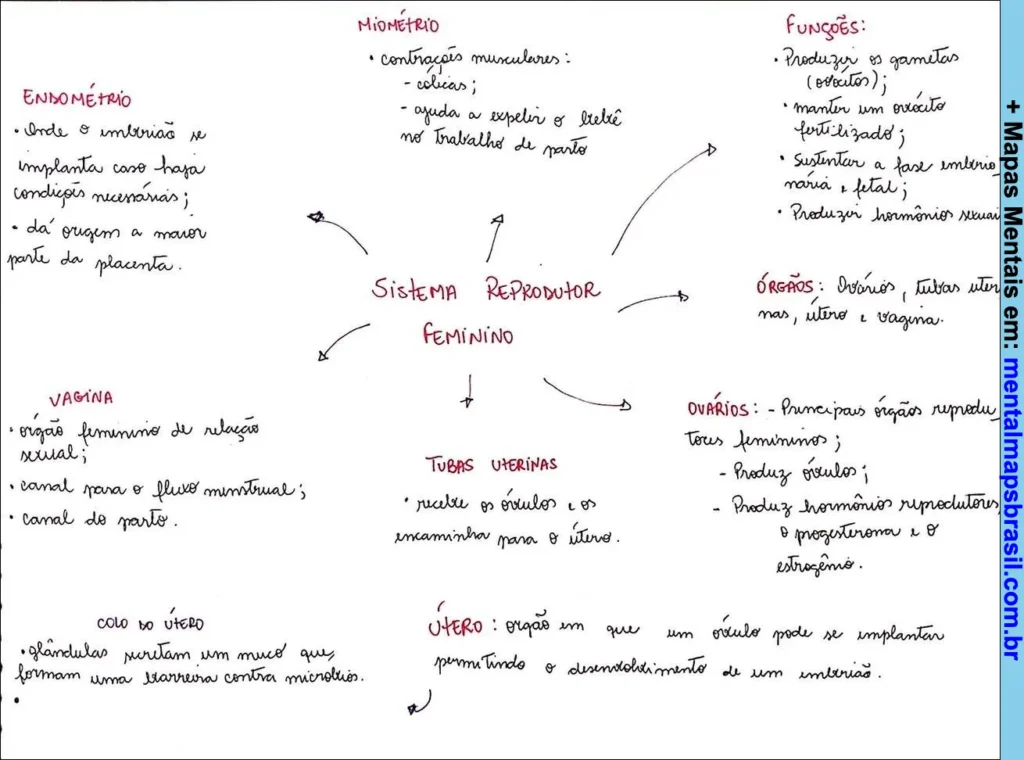 MIOMÉTRIO
• contrações musculares:
- cólicas;
- ajuda a expelir o bebê
no trabalho de parto
FUNÇÕES:
• Produzir os gametas
(ovócitos);
• manter um ovócito
fertilizado;
• Sustentar a fase embrio
nária e fetal;
• Produzir hormônios sexuai
ENDOMÉTRIO
• Onde o embrião se
implanta caso haja
condições necessárias;
• dá origem a maior
parte da placenta.
SISTEMA REPRODUTOR
FEMININO
ÓRGÃOS: Ovários, tubas uteri
nas, útero e vagina.
VAGINA
• órgão feminino de relação
sexual;
• canal para o fluxo menstrual;
• canal do parto.
TUBAS UTERINAS
• recebe os óvulos e os
encaminha para o útero.
OVÁRIOS: - Principais órgãos reprodu
tores femininos;
- Produz óvulos;
- Produz hormônios reprodutores,
o progesterona e o
estrogênio.
COLO DO ÚTERO
• glândulas secretam um muco que,
formam uma barreira contra micróbios.
•
ÚTERO: orgão em que um óvulo pode se implantar
permitindo o desenvolvimento de um embrião.
+ Mapas Mentais em: mentalmapsbrasil.com.br